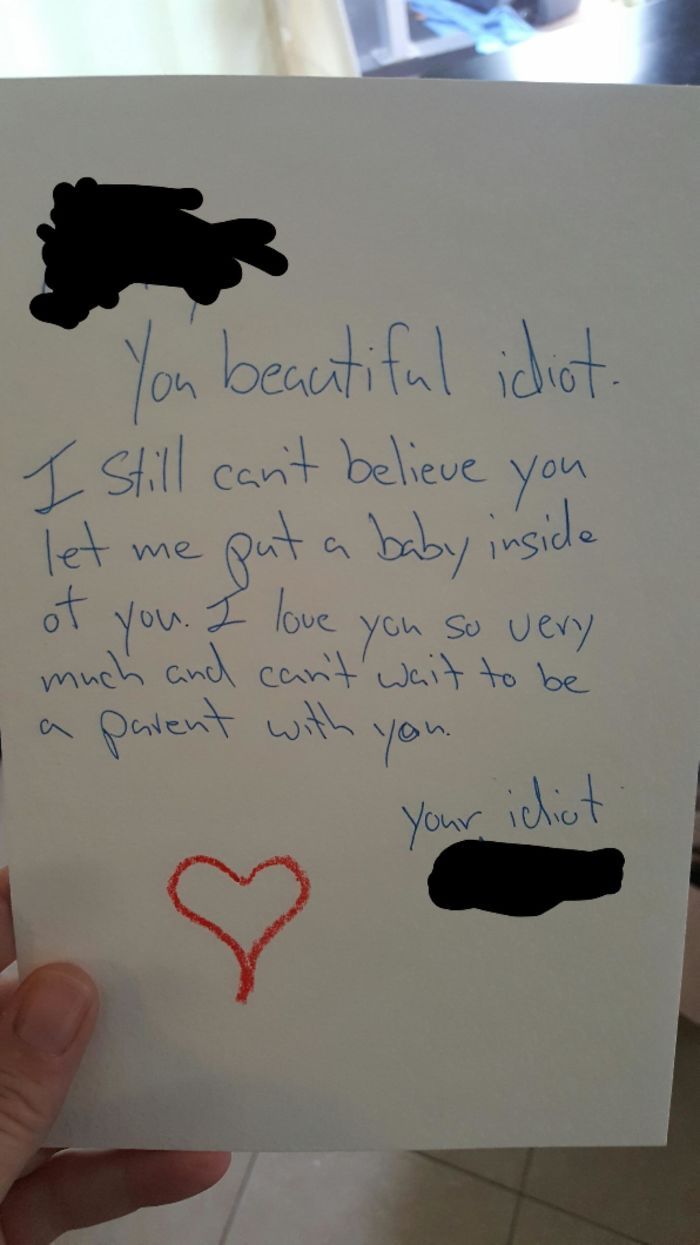 You beautiful idiot.
I Still can't believe you
let me put a baby inside
of you. I love you so very
much and can't wait to be
a parent with you.
your idiot